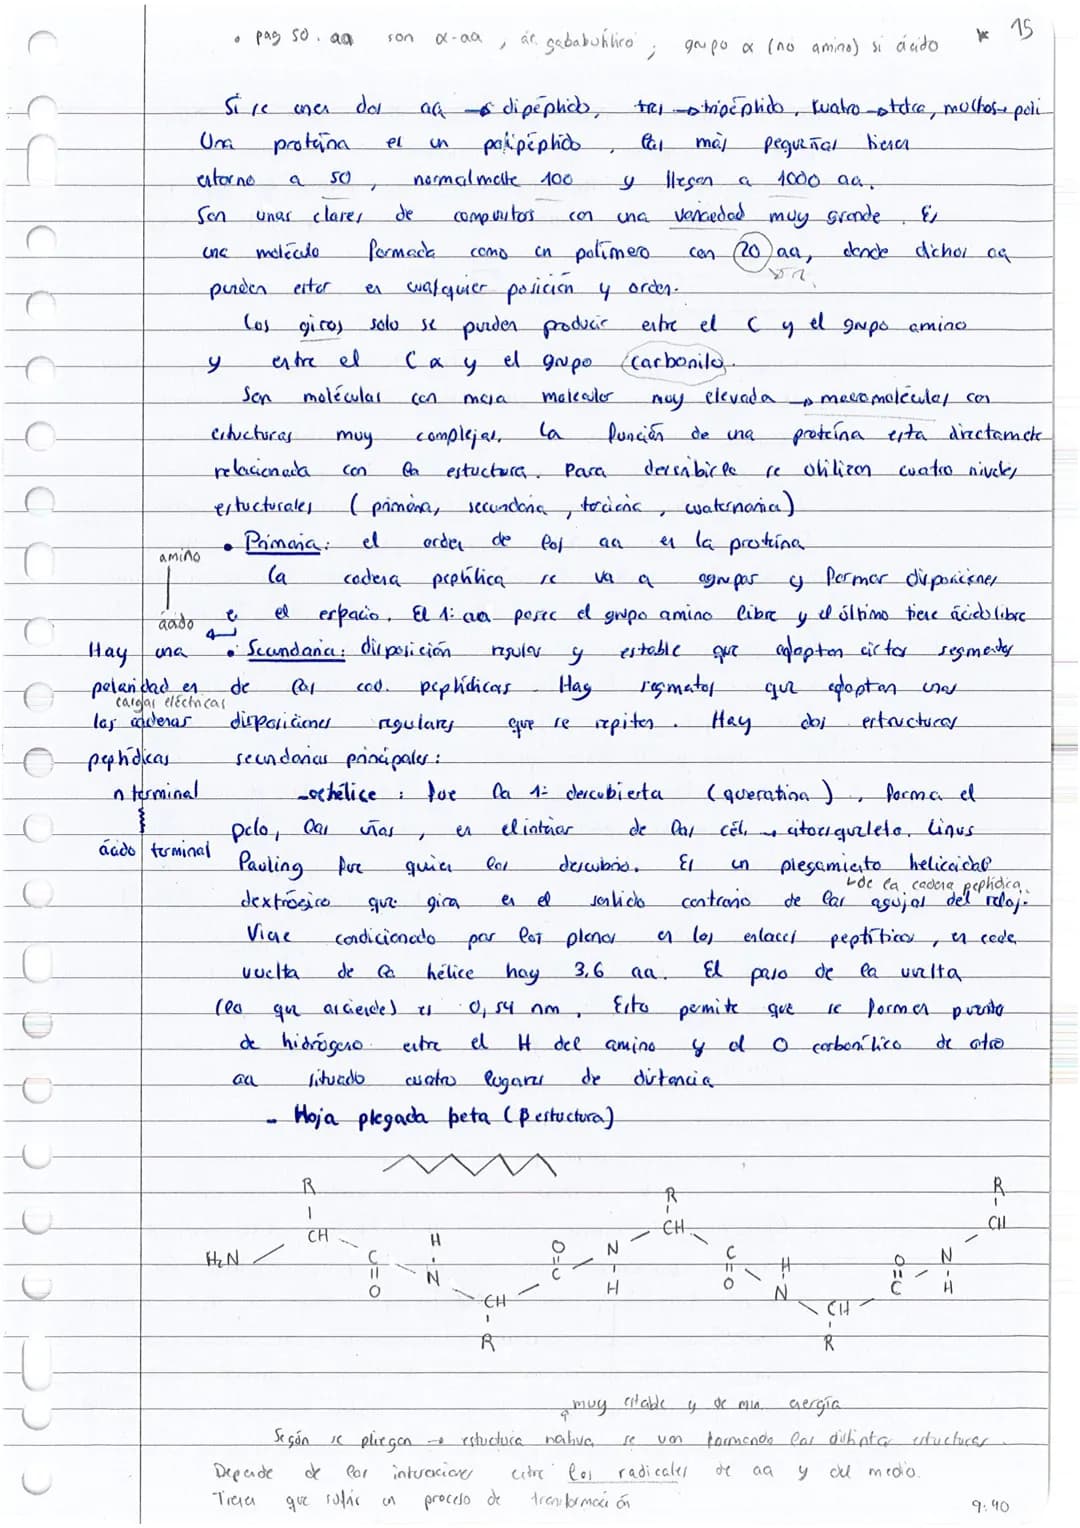 • pag 50. aa son α-aa, ác gababutílico; grupo α (no amino) si ácido * 15
Si se unen dos aa → dipéptido, tres → tripéptido, kuatro → tetra, muchos → poli
Una proteína es un polipéptido, las más pequeñas tienen
entorno a 50, normalmente 100 y llegan a 1000 aa.
Son unas clases de compuestos con una variedad muy grande. Es
una molécula formada como un polímero con 20 aa, donde dichos aa
pueden estar en cualquier posición y orden.
Los giros solo se pueden producir entre el C y el grupo amino
y entre el C α y el grupo carbonilo.
Son moléculas con masa molecular muy elevada → macromoléculas con
estructuras muy complejas. La función de una proteína esta directamete
relacionada con la estuctura. Para describirla se utilizan cuatro niveles
estucturales (primaria, secundaria, terciaria, cuaternaria)
• Primaria: el orden de los aa en la proteína
amino
La cadena peptídica se va a agrupar y formar disposiciones
ácido
e el espacio. El 1: aa posee el grupo amino libre y el último tiene ácido libre
• Secundaria: disposición regular y estable que adoptan ciertos segmentos
de las cad. peptídicas. Hay segmetos que adoptan unas
disposiciones regulares que se repiten. Hay dos estructuras
secundarias principales:
Hay una
polaridad en
cargas eléctricas
las cadenas
peptídicas
n terminal
ácido terminal
- α hélice: fue la 1ª descubierta (queratina), forma el
pelo, las uñas, en el interior de las cél. → citoesqueleto. Linus
Pauling fue quien las descubrió. Es un plegamiento helicoidal
↳ de la cadena peptídica
dextrógiro que gira en el sentido contrario de las agujas del reloj.
Viene condicionado por los planos en los enlaces peptíticos, en cada
vuelta de la hélice hay 3,6 aa. El paso de la vuelta
(lo que asciende) es 0,54 nm. Esto permite que se formen puente
de hidrógeno entre el H del amino y el O carbonílico de otro
aa situado cuatro lugares de distancia
- Hoja plegada beta (β estuctura)
R R R
CH CH CH
H₂N C=O H-N CH-R C=O N-H C=O H-N CH-R C=O N-H
muy estable y de min. energía
Según se pliegan → estuctura nativa, se van formando las distintas estucturas.
Depende de las interacciones entre los radicales de aa y del medio.
Tienen que sufrir un proceso de transformación
9:40